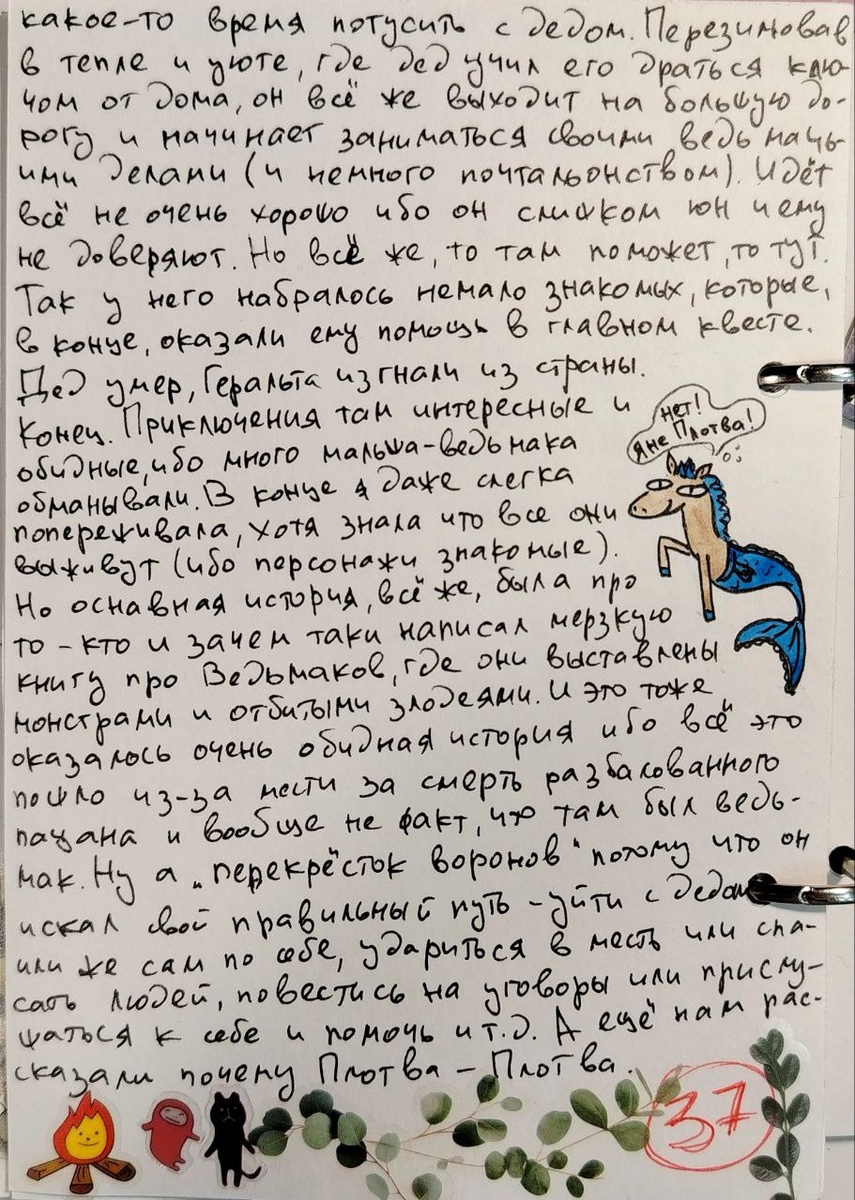 какое-то время потусить с дедом. Перезимовав
в тепле и уюте, где дед учил его драться клю-
чом от дома, он всё же выходит на большую до-
рогу и начинает заниматься своими ведьмачь-
ими делами (и немного почтальонством). Идёт
всё не очень хорошо ибо он слишком юн и ему
не доверяют. Но всё же, то там поможет, то тут.
Так у него набралось немало знакомых, которые,
в конце, оказали ему помощь в главном квесте.
Дед умер, Геральта изгнали из страны.
Конец. Приключения там интересные и
обидные, ибо много малыша-ведьмака
обманывали. В конце я даже слегка
попереживала, хотя знала что все они
выживут (ибо персонажи знакомые).
Но основная история, всё же, была про
то - кто и зачем таки написал мерзкую
книгу про Ведьмаков, где они выставлены
монстрами и отбитыми злодеями. И это тоже
оказалось очень обидная история ибо всё это
пошло из-за мести за смерть разбалованного
пацана и вообще не факт, что там был ведь-
мак. Ну а „перекрёсток воронов" потому что он
искал свой правильный путь - уйти с дедом
или же сам по себе, удариться в месть или спа-
сать людей, повестись на уговоры или прислу-
шаться к себе и помочь и т.д. А ещё нам рас-
сказали почему Плотва - Плотва.
нет!
Я не Плотва!
37